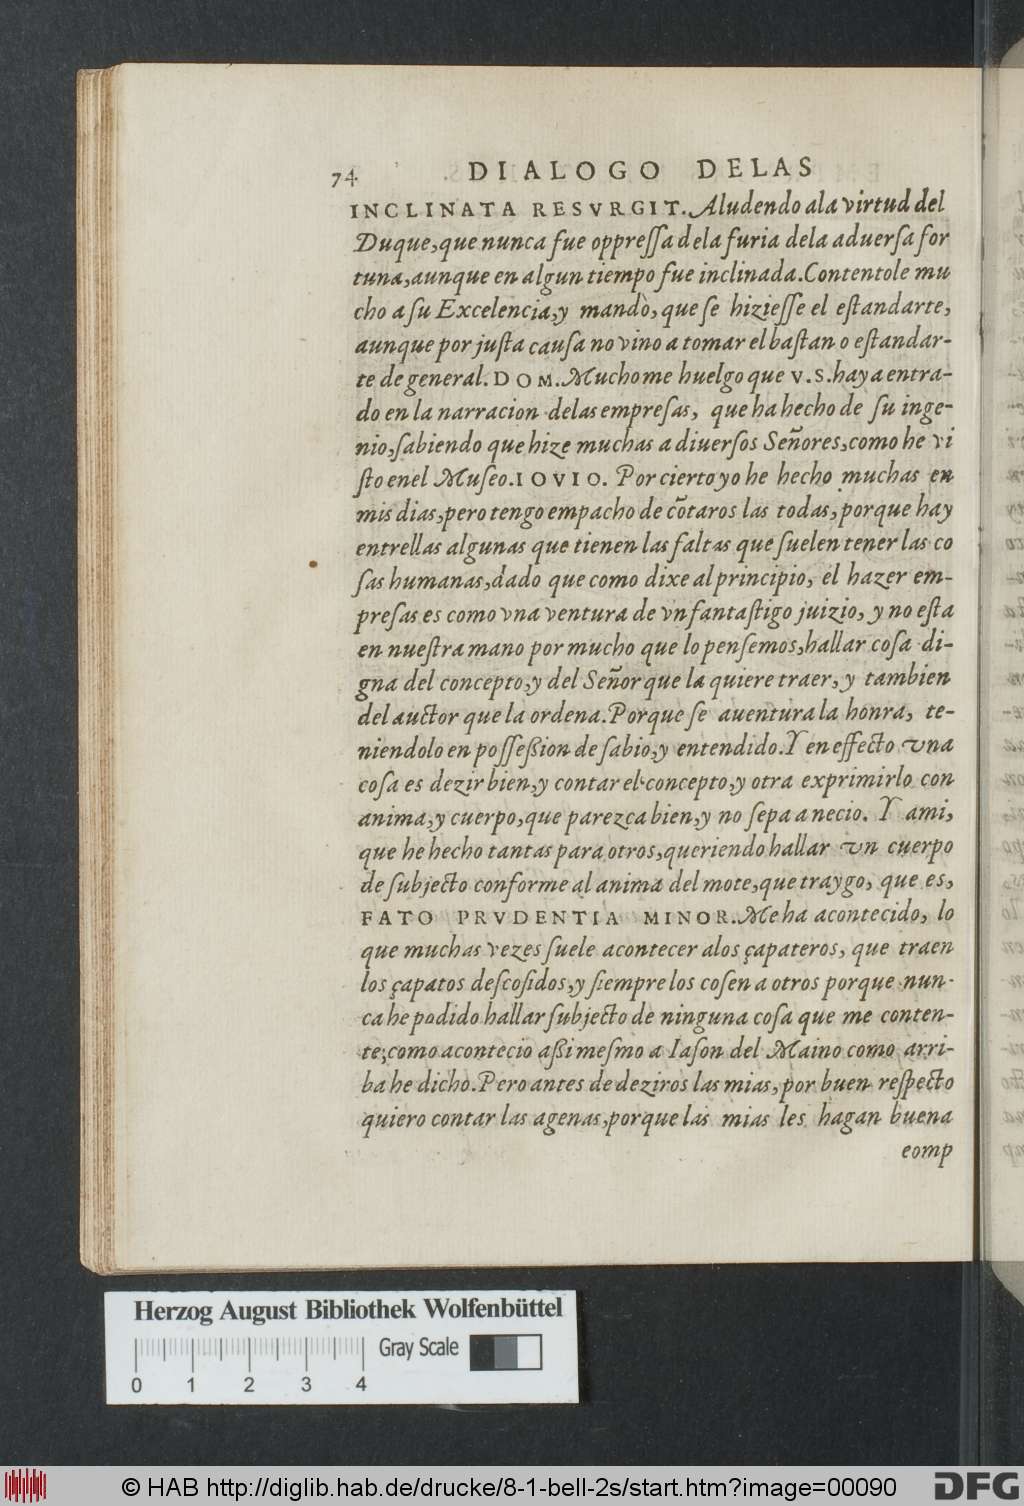 74 DIALOGO DELAS
INCLINATA RESVRGIT. Aludendo ala virtud del
Duque, que nunca fue oppreſſa dela furia dela aduerſa for
tuna, aunque en algun tiempo fue inclinada. Contentole mu
cho a ſu Excelencia, y mandò, que ſe hizieſſe el eſtandarte,
aunque por juſta cauſa no vino a tomar el baſtan o eſtandar-
te de general. DOM. Mucho me huelgo que V.S. haya entra-
do en la narracion delas empreſas, que ha hecho de ſu inge-
nio, ſabiendo que hize muchas a diuerſos Señores, como he vi
ſto enel Muſeo. IOVIO. Por cierto yo he hecho muchas en
mis dias, pero tengo empacho de cõtaros las todas, porque hay
entrellas algunas que tienen las faltas que ſuelen tener las co
ſas humanas, dado que como dixe al principio, el hazer em-
preſas es como vna ventura de vn fantaſtigo juizio, y no eſta
en nueſtra mano por mucho que lo penſemos, hallar coſa di-
gna del concepto, y del Señor que la quiere traer, y tambien
del auctor que la ordena. Porque ſe auentura la honra, te-
niendolo en poſſeßion de ſabio, y entendido. Y en effecto vna
coſa es dezir bien, y contar el concepto, y otra exprimirlo con
anima, y cuerpo, que parezca bien, y no ſepa a necio. Y ami,
que he hecho tantas para otros, queriendo hallar vn cuerpo
de ſubjecto conforme al anima del mote, que traygo, que es,
FATO PRVDENTIA MINOR. Me ha acontecido, lo
que muchas vezes ſuele acontecer alos çapateros, que traen
los çapatos deſcoſidos, y ſiempre los coſen a otros porque nun-
ca he podido hallar ſubjecto de ninguna coſa que me conten-
te; como acontecio aßi meſmo a Iaſon del Maino como arri-
ba he dicho. Pero antes de deziros las mias, por buen reſpecto
quiero contar las agenas, porque las mias les hagan buena
comp
Herzog August Bibliothek Wolfenbüttel
Gray Scale
0 1 2 3 4
© HAB http://diglib.hab.de/drucke/8-1-bell-2s/start.htm?image=00090
DFG